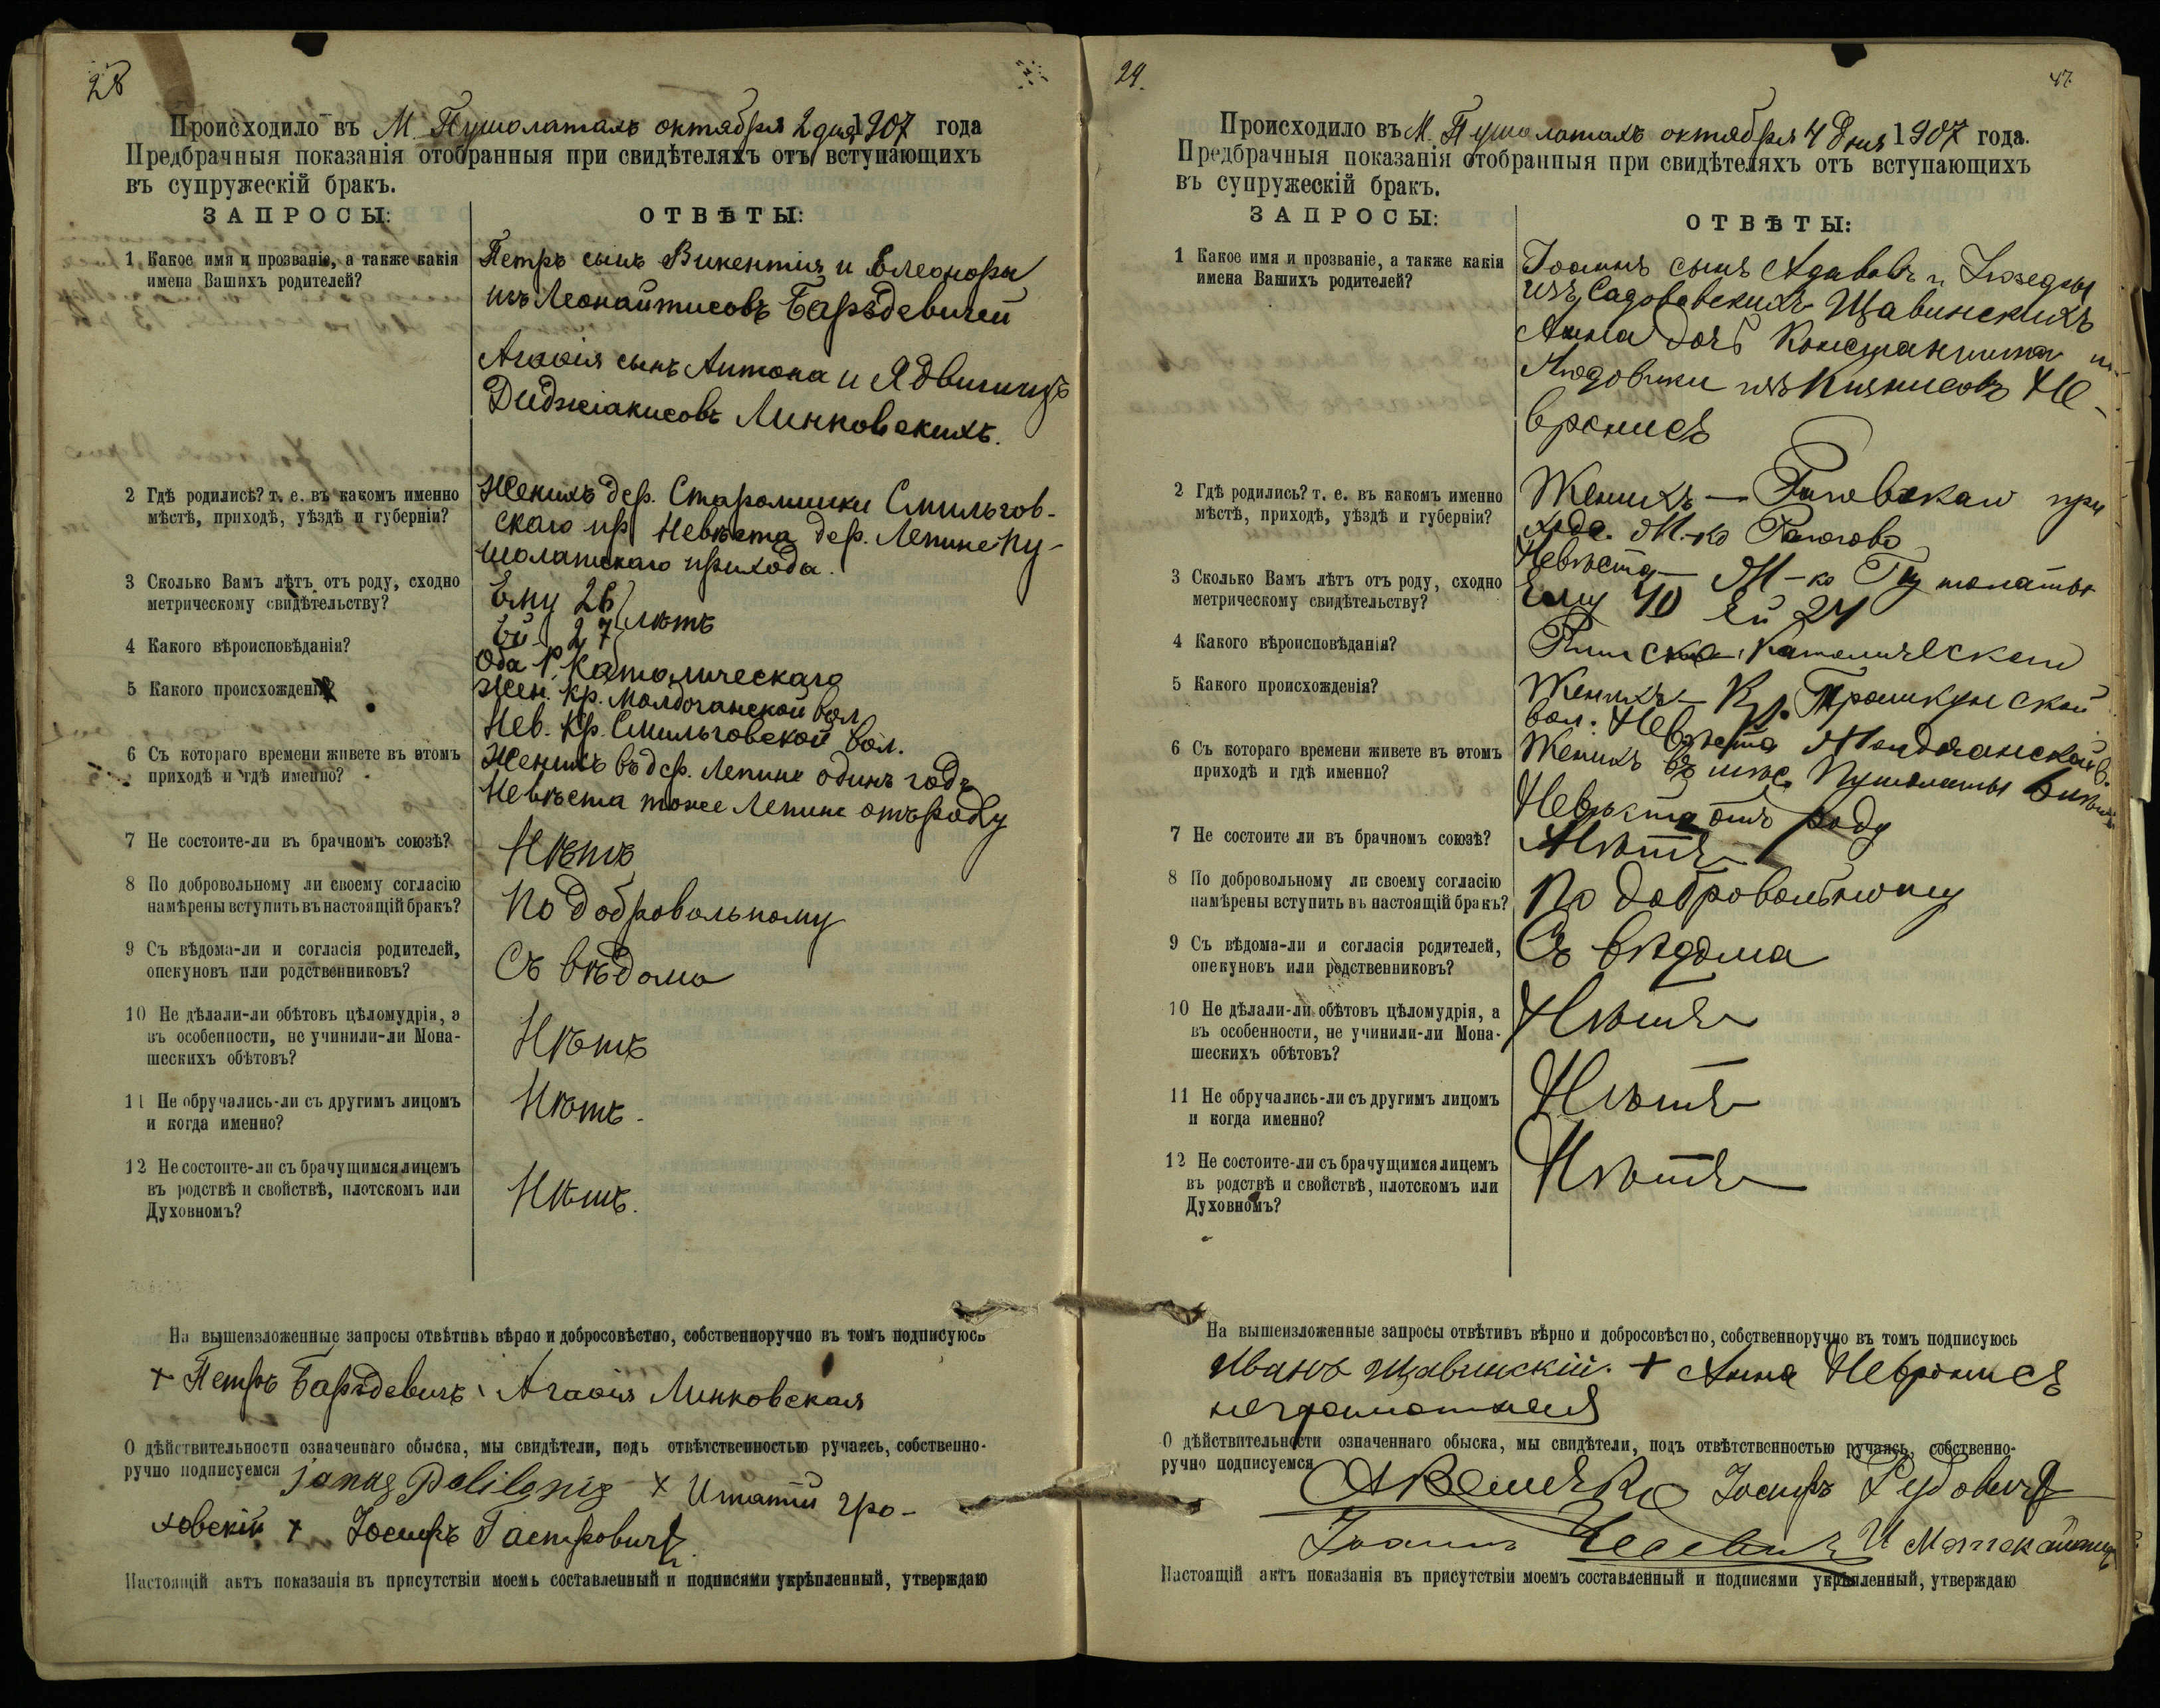 28
Происходило въ М. Пушолатахъ октября 2 дня 1907 года
Предбрачныя показанія отобранныя при свидѣтеляхъ отъ вступающихъ
въ супружескій бракъ.
ЗАПРОСЫ:
ОТВѢТЫ:
1 Какое имя и прозваніе, а также какія
имена Вашихъ родителей?
Петръ сынъ Викентія и Елеоноры
изъ Леонайтисовъ Барѣдевичей
Агафія сынъ Антона и Ядвиги изъ
Диджіакисовъ Линковскихъ.
2 Гдѣ родились? т. е. въ какомъ именно
мѣстѣ, приходѣ, уѣздѣ и губерніи?
Женихъ дер. Старолишки Смильгов-
скаго пр. Невѣста дер. Лепине Пу-
шолатскаго прихода.
3 Сколько Вамъ лѣтъ отъ роду, сходно
метрическому свидѣтельству?
Ему 26
Ей 27 лѣтъ
4 Какого вѣроисповѣданія?
Оба Р. Католическаго
5 Какого происхожденія?
Жен. кр. Молдочанской вол.
Нев. кр. Смильговской вол.
6 Съ котораго времени живете въ этомъ
приходѣ и гдѣ именно?
Женихъ въ дер. Лепине одинъ годъ
Невѣста тоже Лепине отъ роду
7 Не состоите-ли въ брачномъ союзѣ?
Нѣтъ
8 По добровольному ли своему согласію
намѣрены вступить въ настоящій бракъ?
По добровольному
9 Съ вѣдома-ли и согласія родителей,
опекуновъ или родственниковъ?
Съ вѣдома
10 Не дѣлали-ли обѣтовъ цѣломудрія, а
въ особенности, не учинили-ли Мона-
шескихъ обѣтовъ?
Нѣтъ
11 Не обручались-ли съ другимъ лицомъ
и когда именно?
Нѣтъ.
12 Не состоите-ли съ брачущимся лицемъ
въ родствѣ и свойствѣ, плотскомъ или
Духовномъ?
Нѣтъ.
На вышеизложенные запросы отвѣтивъ вѣрно и добросовѣстно, собственноручно въ томъ подписуюсь
+ Петръ Барѣдевичъ Агафія Линковская
О дѣйствительности означеннаго обыска, мы свидѣтели, подъ отвѣтственностью ручаясь, собственно-
ручно подписуемся
+ Игнатій Гро-
ховскій + Іосифъ Гастровичъ
Настоящій актъ показанія въ присутствіи моемъ составленный и подписями укрѣпленный, утверждаю
29.
Происходило въ М. Пушолатахъ октября 4 дня 1907 года.
Предбрачныя показанія отобранныя при свидѣтеляхъ отъ вступающихъ
въ супружескій бракъ.
ЗАПРОСЫ:
ОТВѢТЫ:
1 Какое имя и прозваніе, а также какія
имена Вашихъ родителей?
Іоаннъ сынъ и Іозефы
изъ Садовскихъ Щавинскихъ
Анна дочь Константина и
Людовики изъ Не-
вронисъ
2 Гдѣ родились? т. е. въ какомъ именно
мѣстѣ, приходѣ, уѣздѣ и губерніи?
Женихъ — при
хода. М-ко Рагово
Невѣста — М-ко Пушолаты
3 Сколько Вамъ лѣтъ отъ роду, сходно
метрическому свидѣтельству?
Ему 40 Ей 24
4 Какого вѣроисповѣданія?
Римско-Католическаго
5 Какого происхожденія?
Женихъ — Кр. Трошкунской
вол. Невѣста Молдочанской в.
6 Съ котораго времени живете въ этомъ
приходѣ и гдѣ именно?
Женихъ въ мѣс. Пушолаты
Невѣста отъ роду
7 Не состоите ли въ брачномъ союзѣ?
Нѣтъ
8 По добровольному ли своему согласію
намѣрены вступить въ настоящій бракъ?
По добровольному
9 Съ вѣдома-ли и согласія родителей,
опекуновъ или родственниковъ?
Съ вѣдома
10 Не дѣлали-ли обѣтовъ цѣломудрія, а
въ особенности, не учинили-ли Мона-
шескихъ обѣтовъ?
Нѣтъ
11 Не обручались-ли съ другимъ лицомъ
и когда именно?
Нѣтъ
12 Не состоите-ли съ брачущимся лицемъ
въ родствѣ и свойствѣ, плотскомъ или
Духовномъ?
Нѣтъ
На вышеизложенные запросы отвѣтивъ вѣрно и добросовѣстно, собственноручно въ томъ подписуюсь
Иванъ Щавинскій. + Анна Невронисъ
неграмотная
О дѣйствительности означеннаго обыска, мы свидѣтели, подъ отвѣтственностью ручаясь, собственно-
ручно подписуемся
Іосифъ
Іоаннъ
Настоящій актъ показанія въ присутствіи моемъ составленный и подписями укрѣпленный, утверждаю